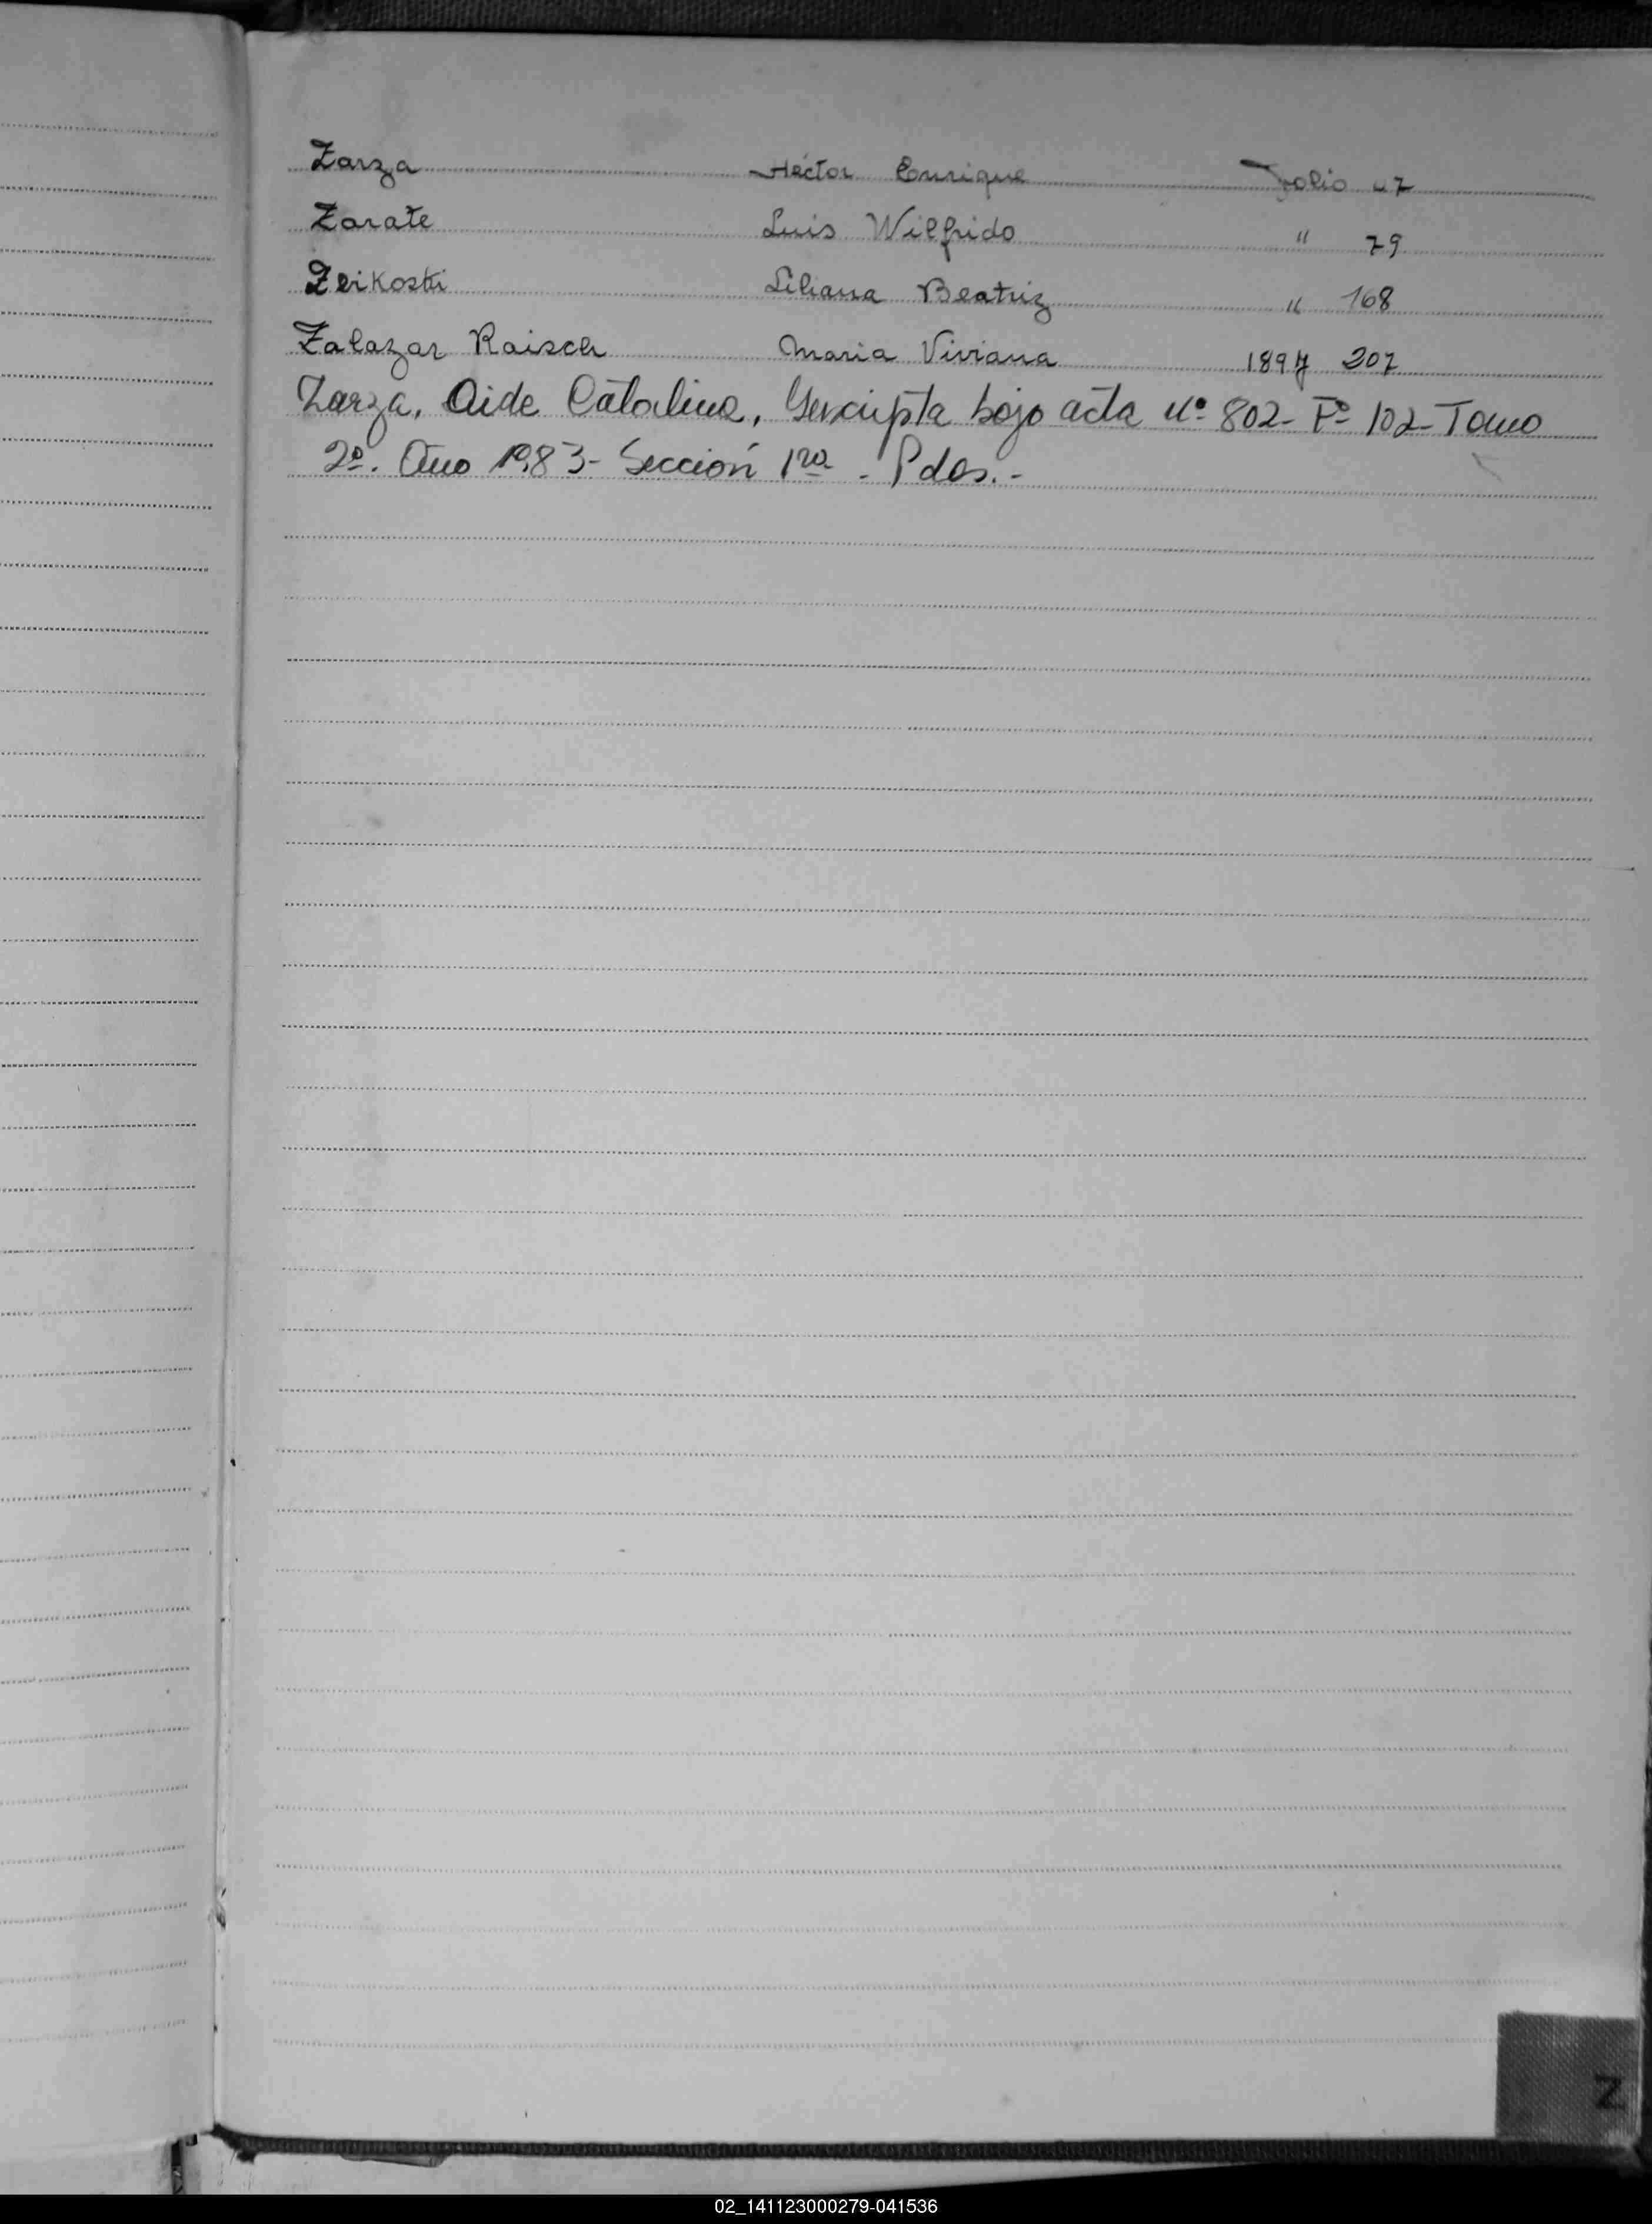 Zarza Héctor Enrique Folio 47
Zarate Luis Wilfrido " 79
Zeikoski Liliana Beatriz " 168
Zalazar Raisch Maria Viviana 1897 207
Zarza, Aide Catalina, Yenscripta bajo acta Nº 802- Fº 102- Tomo
2º. Año 1983- Sección 1ra - Pdas.-
Z
02_141123000279-041536